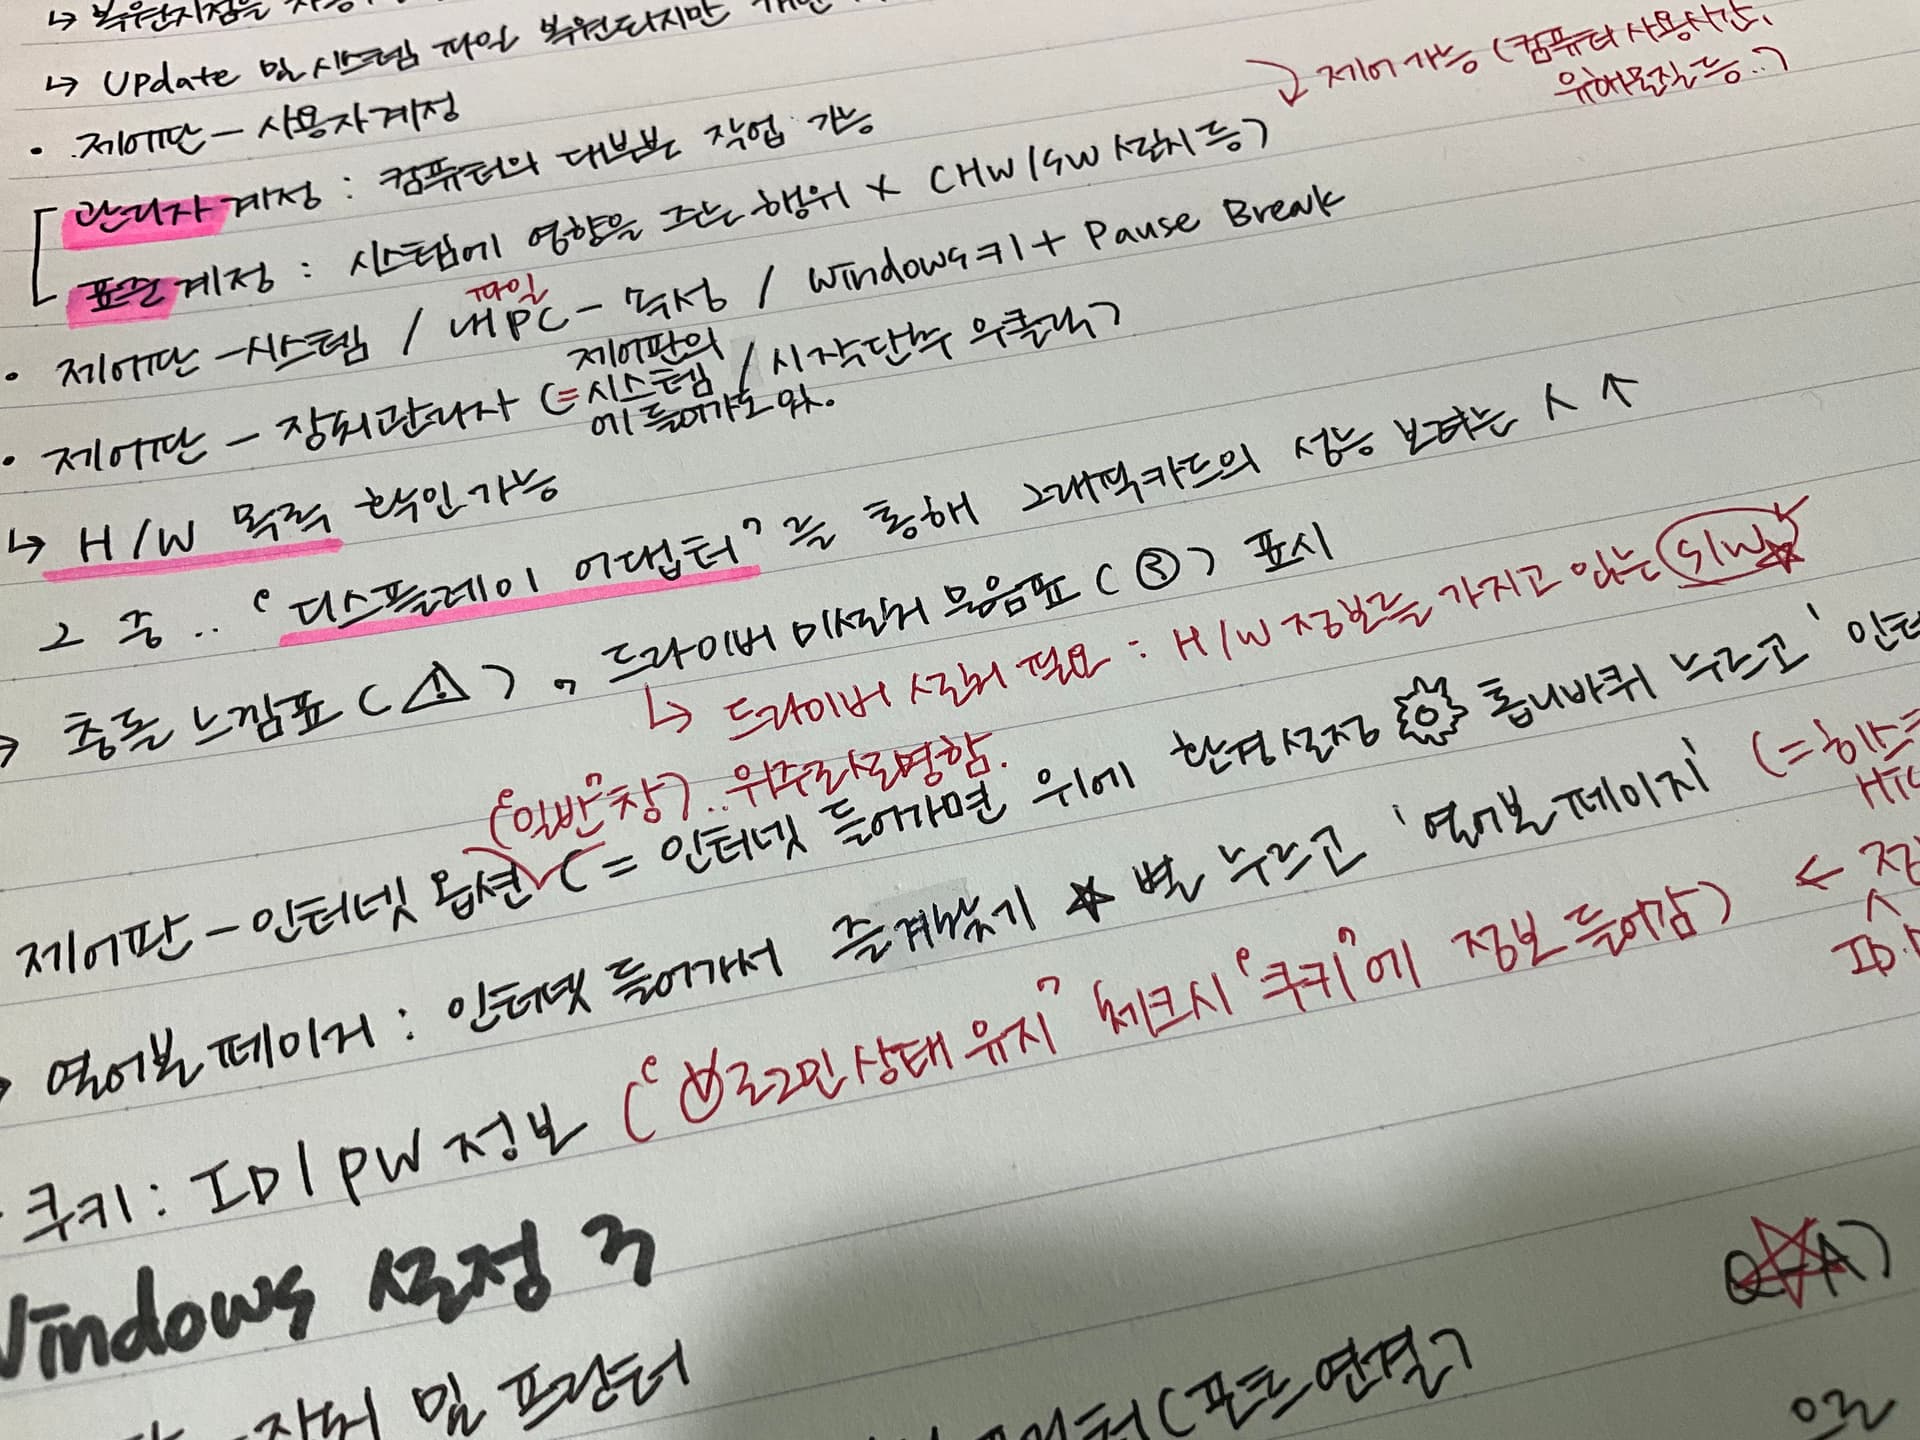 ↳ 복원지점을
↳ Update 및 시스템 파일 복원되지만
제어가능 (컴퓨터 사용시간,
유해물질 등..)
• 제어판 - 사용자계정
관리자 계정 : 컴퓨터의 대부분 작업 가능
표준 계정 : 시스템에 영향을 주는 행위 × (HW/SW 설치 등)
파일
• 제어판 - 시스템 / 내PC - 속성 / Windows키 + Pause Break
제어판의
• 제어판 - 장치관리자 (= 시스템 / 시작단추 우클릭)
에 들어가도 있.
↳ H/W 목록 확인가능
그 중.. "디스플레이 어댑터"를 통해 그래픽카드의 성능 보려는 ㅅ ↑
→ 충돌 느낌표 (⚠), 드라이버 미설치 물음표 (?) 표시
↳ 드라이버 설치 필요 : H/W 정보를 가지고 있는 S/W ☆
("일반"창)..위주라 설명함.
제어판 - 인터넷 옵션 (= 인터넷 들어가면 위에 환경설정 ⚙ 톱니바퀴 누르고 '인터
→ 열어본 페이지 : 인터넷 들어가서 즐겨찾기 ★ 별 누르고 '열어본 페이지' (=히스
쿠키 : ID/PW 정보 ("로그인 상태 유지" 체크시 "쿠키"에 정보 들어감) ←
ID.
Windows 설정 3
Q-A)
장치 및 프린터
(포트 연결)